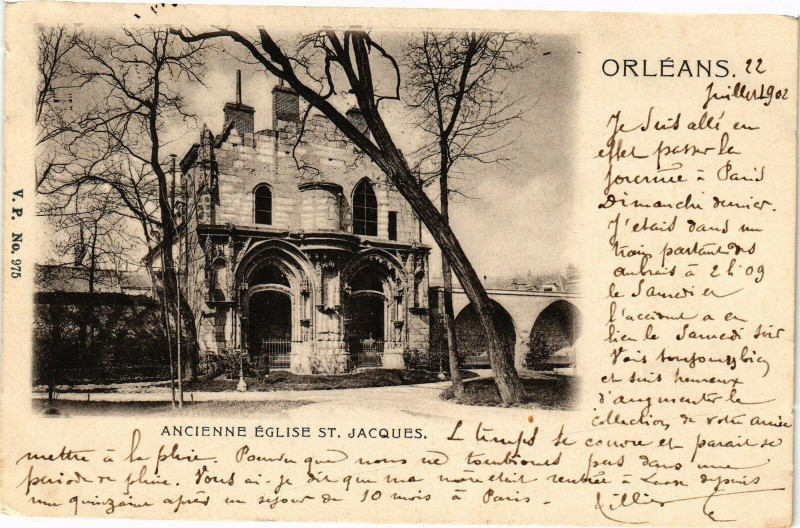 ORLÉANS. 22
Juillet 1902
Je suis allé en
effet passer la
journée à Paris
Dimanche dernier.
J'étais dans un
train partant des
aubrais à 2h09
le Samedi et
l'accident a eu
lieu le Samedi soir
Vais toujours bien
et suis heureux
d'augmenter la
collection de votre amie
V. P. No. 975
ANCIENNE ÉGLISE ST. JACQUES.
Le temps se couvre et parait se
mettre à la pluie. Pourvu que nous ne tombions pas dans une
période de pluie. Vous ai-je dit que ma mère était rentrée à depuis
une quinzaine après un séjour de 10 mois à Paris -